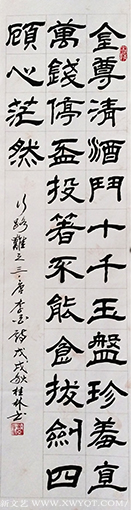 金尊清酒鬥十千玉盤珍羞直
萬錢停盃投箸不能食拔劍四
顧心茫然
行路難之三唐李白詩戊戌秋桂林书
www.XWYOT.com